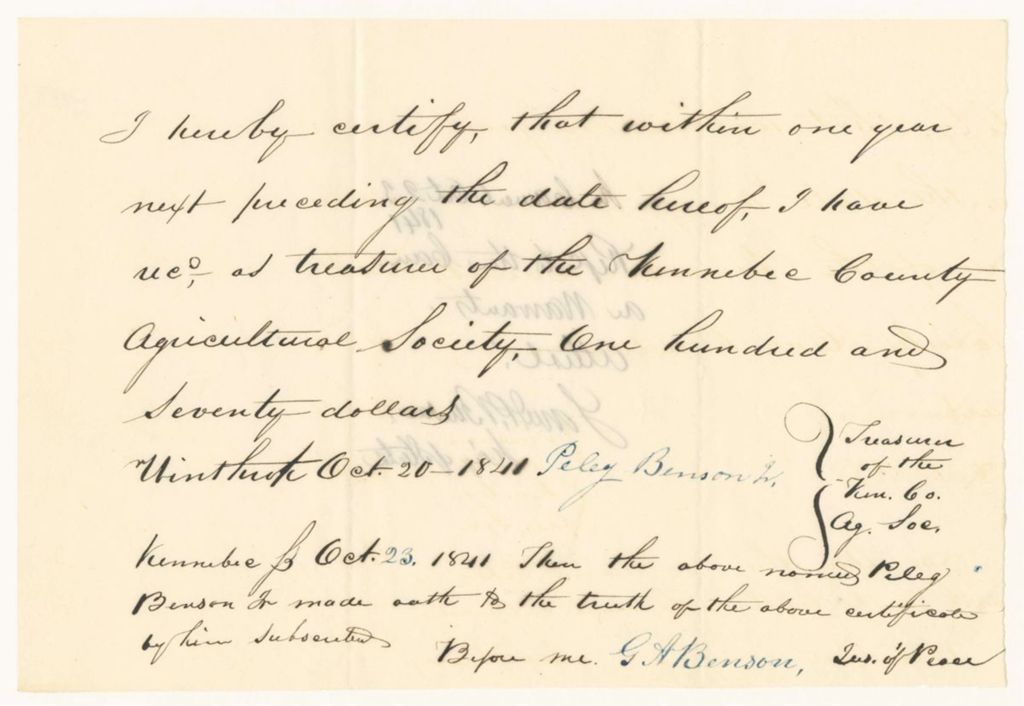 I hereby certify, that within one year
next preceding the date hereof, I have
recd, as treasurer of the Kennebec County
Agricultural Society, One hundred and
seventy dollars
Winthrop Oct. 20 - 1841 Peleg Benson Jr.
Treasurer
of the
Ken. Co.
Ag. Soc.
Kennebec ss Oct. 23. 1841 Then the above named Peleg
Benson Jr made oath to the truth of the above certificate
by him subscribed
Before me. G A Benson, Jus. of Peace